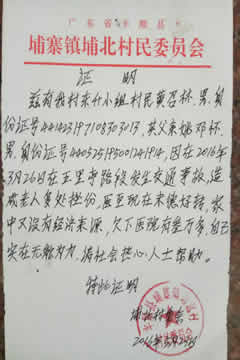 广东省丰顺县
埔寨镇埔北村民委员会
证 明
兹有我村 小组村民黄召林，男，身
份证号441423197108303013，其父亲 邓杯，
男，身份证号440525195001241914，因在2016年
3月26日在 路段发生交通事故，造
成老人多处挫伤，医至现在未能好转，家
中又没有经济来源，欠下医院有叁万多，自己
实在无能为力，请社会热心人士帮助。
特此证明
埔北村委会
2016年 月 日